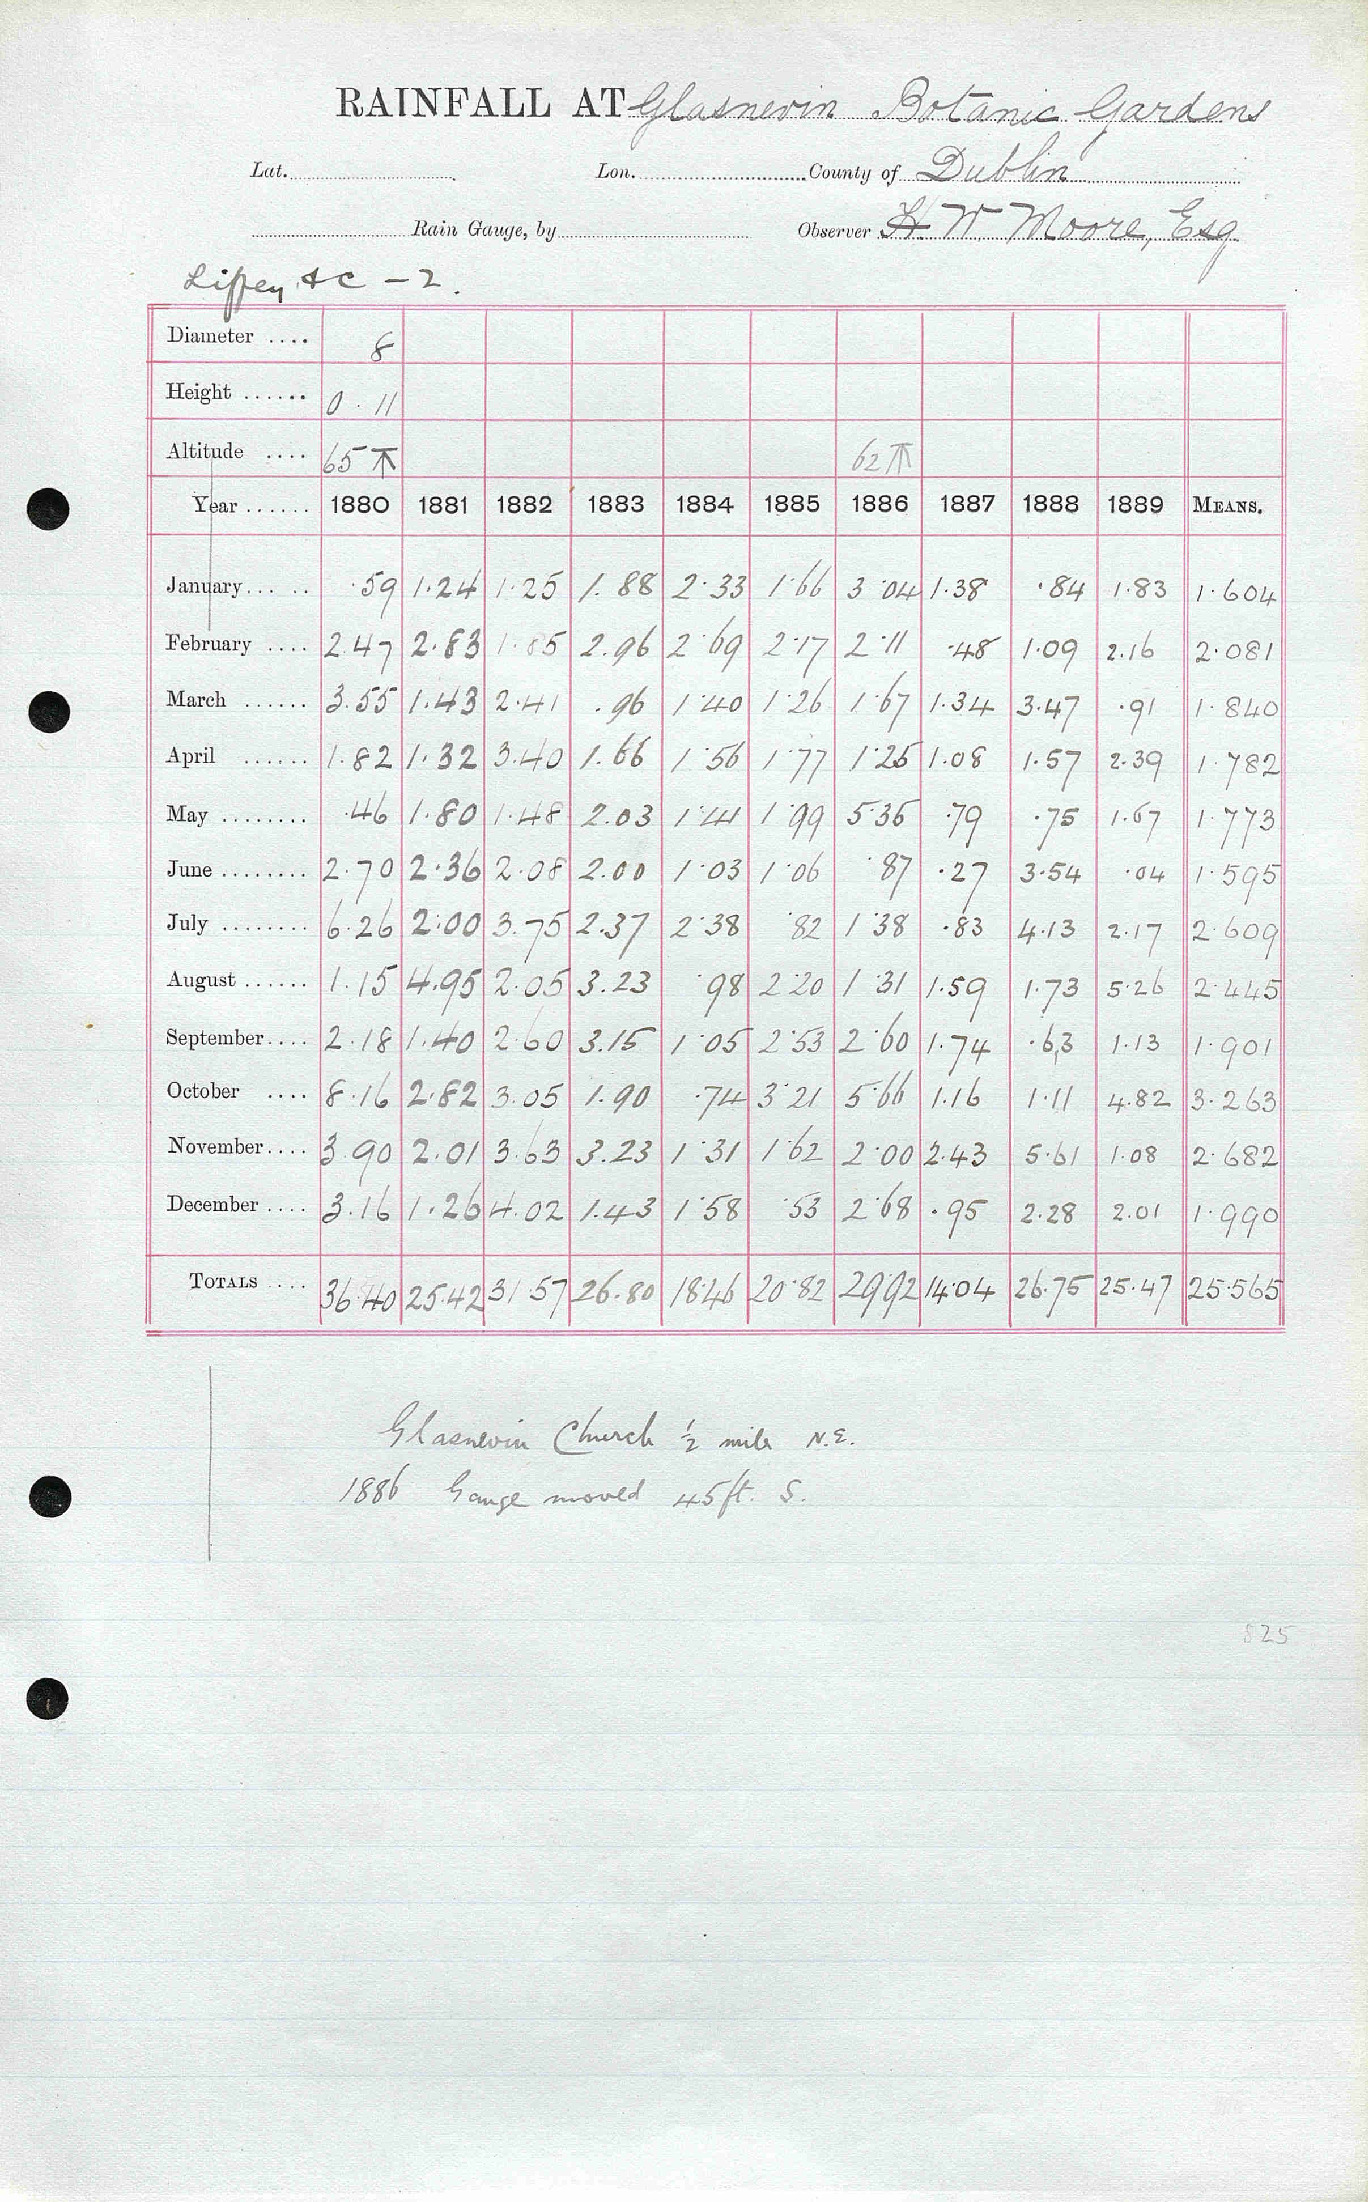 RAINFALL AT Glasnevin Botanic Gardens
Lat. Lon. County of Dublin
Rain Gauge, by Observer H W Moore, Esq
Liffey &c – 2.
Diameter .... 8
Height ...... 0 . 11
Altitude .... 65 T 62 T
Year ...... 1880 1881 1882 1883 1884 1885 1886 1887 1888 1889 MEANS.
January ..... ·59 1·24 1·25 1.88 2·33 1·66 3·04 1·38 ·84 1·83 1·604
February .... 2.47 2.83 1·85 2.96 2·69 2·17 2·11 ·48 1·09 2·16 2·081
March ...... 3.55 1.43 2·41 .96 1·40 1·26 1·67 1·34 3·47 ·91 1·840
April ...... 1.82 1.32 3.40 1.66 1·56 1·77 1·25 1·08 1·57 2·39 1·782
May ........ ·46 1.80 1·48 2.03 1·41 1·99 5·35 ·79 ·75 1·67 1·773
June ........ 2.70 2.36 2·08 2.00 1·03 1·06 ·87 ·27 3·54 ·04 1·595
July ........ 6.26 2.00 3.75 2.37 2·38 ·82 1·38 ·83 4·13 2·17 2·609
August ...... 1.15 4.95 2.05 3.23 ·98 2·20 1·31 1·59 1·73 5·26 2·445
September .... 2.18 1.40 2·60 3.15 1·05 2·53 2·60 1·74 ·63 1·13 1·901
October .... 8.16 2.82 3.05 1.90 ·74 3·21 5·66 1·16 1·11 4·82 3·263
November .... 3.90 2.01 3.63 3.23 1·31 1·62 2·00 2·43 5·61 1·08 2·682
December .... 3.16 1.26 4.02 1.43 1·58 ·53 2·68 ·95 2·28 2·01 1·990
TOTALS .... 36·40 25.42 31·57 26.80 18·46 20·82 29·92 14·04 26·75 25·47 25·565
Glasnevin Church ½ mile N.E.
1886 Gauge moved 45 ft. S.
825